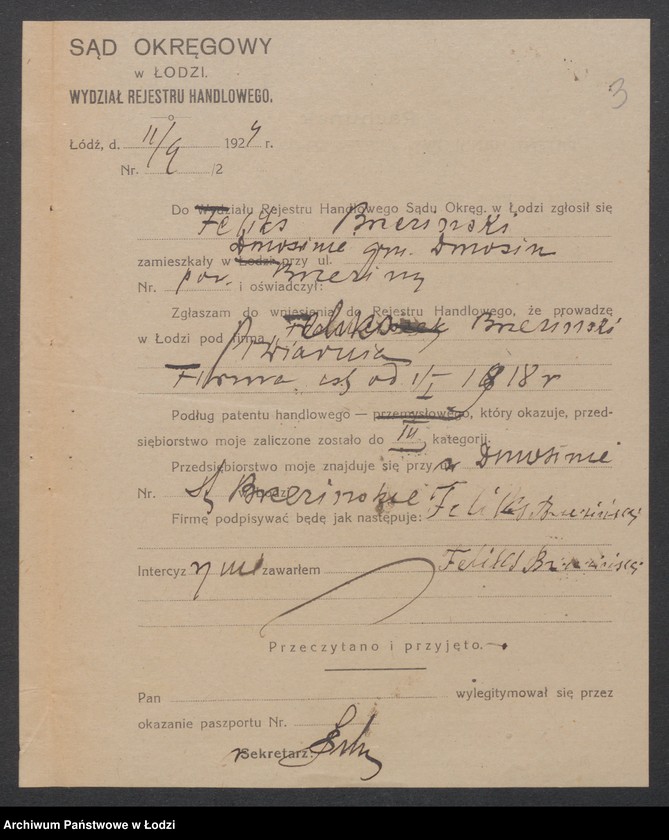 SĄD OKRĘGOWY
w ŁODZI.
WYDZIAŁ REJESTRU HANDLOWEGO.
3
Łódź, d. 11/9 1924 r.
Nr. /2
Do Wydziału Rejestru Handlowego Sądu Okręg. w Łodzi zgłosił się
Feliks Brzeziński
Dmosinie gm. Dmosin
zamieszkały w Łodzi przy ul.
pow. Brzeziny
Nr. i oświadczył:
Zgłaszam do wniesienia do Rejestru Handlowego, że prowadzę
w Łodzi pod firmą Feliks Brzeziński
Piwiarnia
Firma ist. od 1/I 1918 r
Podług patentu handlowego — przemysłowego, który okazuje, przed-
siębiorstwo moje zaliczone zostało do III kategorji.
Przedsiębiorstwo moje znajduje się przy w Dmosinie
Nr. Brzezińskie
Firmę podpisywać będę jak następuje: Feliks Brzeziński
Intercyz nie zawarłem Feliks Brzeziński
Przeczytano i przyjęto.
Pan wylegitymował się przez
okazanie paszportu Nr.
Sekretarz:
Archiwum Państwowe w Łodzi